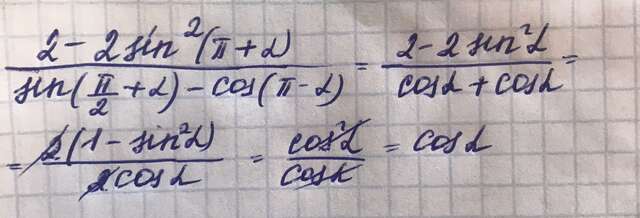 (2 - 2 sin²(π + α)) / (sin(π/2 + α) - cos(π - α)) = (2 - 2 sin²α) / (cosα + cosα) =
= 2(1 - sin²α) / 2cosα = cos²α / cosα = cosα